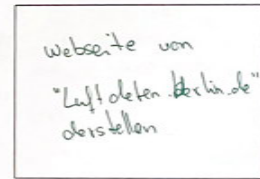 Webseite von
"Luftdaten.berlin.de"
darstellen